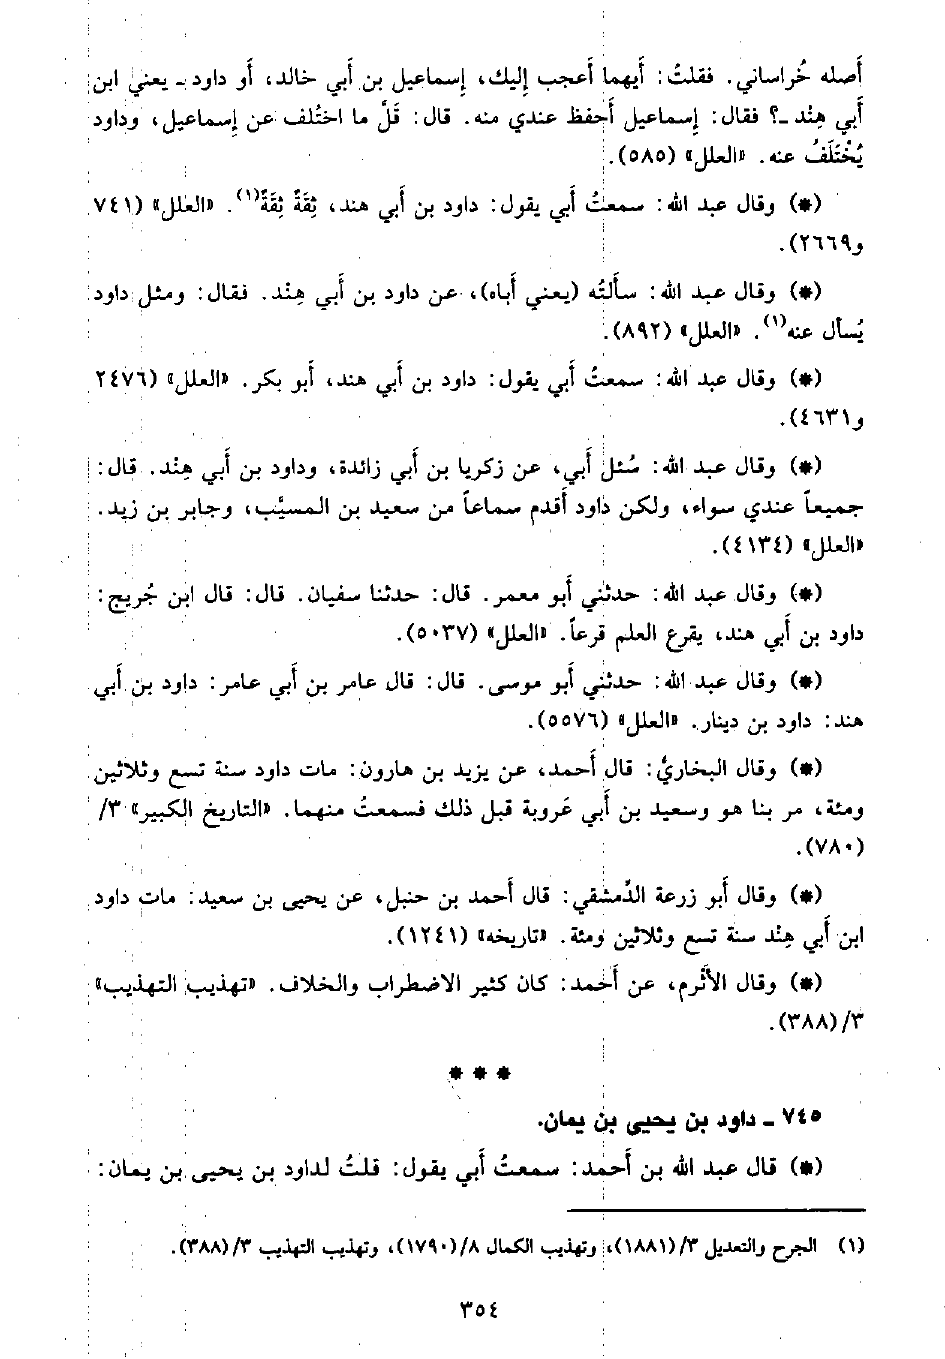 أَصله خُراساني. فقلتُ: أَيهما أَعجب إِليك، إِسماعيل بن أَبي خالد، أَو داود ـ يعني ابن
أَبي هِنْد ـ؟ فقال: إِسماعيل أَحفظ عندي منه. قال: قَلَّ ما اختُلف عن إِسماعيل، وداود
يُخْتَلَفُ عنه. «العلل» (٥٨٥).
(*) وقال عبد الله: سمعتُ أَبي يقول: داود بن أَبي هند، ثِقَةٌ ثِقَةٌ(١). «العلل» (٧٤١
و٢٦٦٩).
(*) وقال عبد الله: سأَلتُه (يعني أَباه)، عن داود بن أَبي هِنْد. فقال: ومثل داود
يُسأل عنه(١). «العلل» (٨٩٢).
(*) وقال عبد الله: سمعتُ أَبي يقول: داود بن أَبي هند، أَبو بكر. «العلل» (٢٤٧٦
و٤٦٣١).
(*) وقال عبد الله: سُئل أَبي، عن زكريا بن أَبي زائدة، وداود بن أَبي هِنْد. قال:
جميعاً عندي سواء، ولكن داود أَقدم سماعاً من سعيد بن المسيَّب، وجابر بن زيد.
«العلل» (٤١٣٤).
(*) وقال عبد الله: حدثني أَبو معمر. قال: حدثنا سفيان. قال: قال ابن جُريج:
داود بن أَبي هند، يقرع العلم قرعاً. «العلل» (٥٠٣٧).
(*) وقال عبد الله: حدثني أَبو موسى. قال: قال عامر بن أَبي عامر: داود بن أَبي
هند: داود بن دينار. «العلل» (٥٥٧٦).
(*) وقال البخاريُّ: قال أَحمد، عن يزيد بن هارون: مات داود سنة تسع وثلاثين
ومئة، مر بنا هو وسعيد بن أَبي عَروبة قبل ذلك فسمعتُ منهما. «التاريخ الكبير» ٣/
(٧٨٠).
(*) وقال أَبو زرعة الدِّمشقي: قال أَحمد بن حنبل، عن يحيى بن سعيد: مات داود
ابن أَبي هِنْد سنة تسع وثلاثين ومئة. «تاريخه» (١٢٤١).
(*) وقال الأَثْرم، عن أَحمد: كان كثير الاضطراب والخلاف. «تهذيب التهذيب»
٣/(٣٨٨).
* * *
٧٤٥ ـ داود بن يحيى بن يمان.
(*) قال عبد الله بن أَحمد: سمعتُ أَبي يقول: قلتُ لداود بن يحيى بن يمان:
(١) الجرح والتعديل ٣/(١٨٨١)، وتهذيب الكمال ٨/(١٧٩٠)، وتهذيب التهذيب ٣/(٣٨٨).
٣٥٤